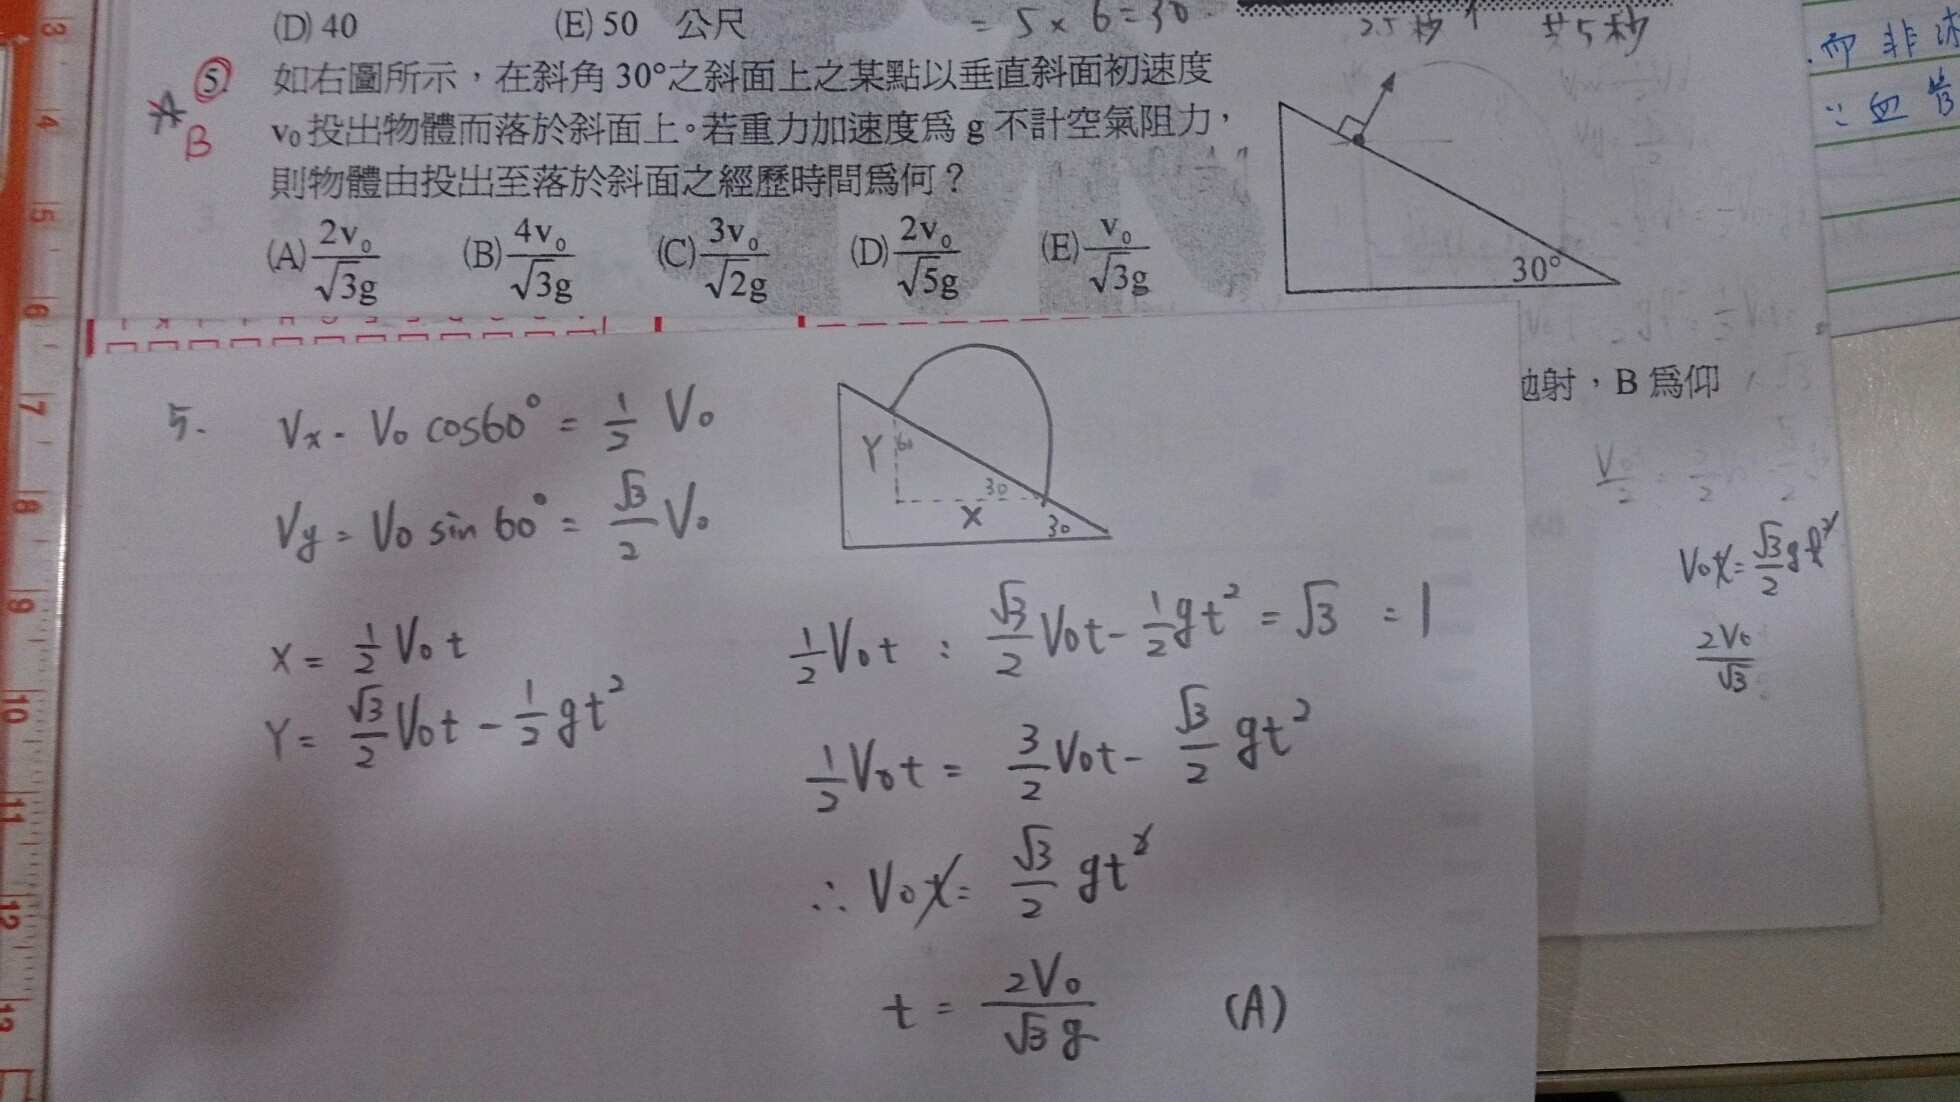 (D) 40 (E) 50 公尺
= 5 × 6 = 30
2.5秒 共5秒
而非
∵血管
⑤ 如右圖所示，在斜角 30°之斜面上之某點以垂直斜面初速度
B v₀ 投出物體而落於斜面上。若重力加速度為 g 不計空氣阻力，
則物體由投出至落於斜面之經歷時間為何？
(A) 2v₀/√3g (B) 4v₀/√3g (C) 3v₀/√2g (D) 2v₀/√5g (E) v₀/√3g
30°
拋射，B 為仰
5. Vx = V₀ cos60° = 1/2 V₀
Vy = V₀ sin 60° = √3/2 V₀
Y 60
30
X 30
X = 1/2 V₀t
Y = √3/2 V₀t - 1/2 gt²
1/2 V₀t : √3/2 V₀t - 1/2 gt² = √3 : 1
1/2 V₀t = 3/2 V₀t - √3/2 gt²
∴ V₀t = √3/2 gt²
t = 2V₀/√3 g (A)
V₀t = √3/2 gt²
2V₀/√3
3
4
5
6
7
8
9
10
11
12
13